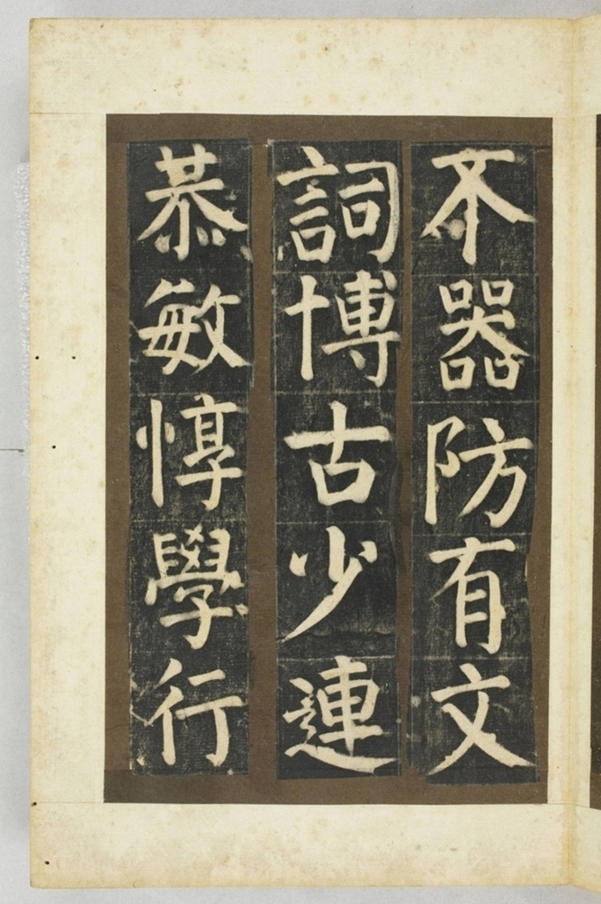 不器防有文
詞博古少連
恭敏惇學行